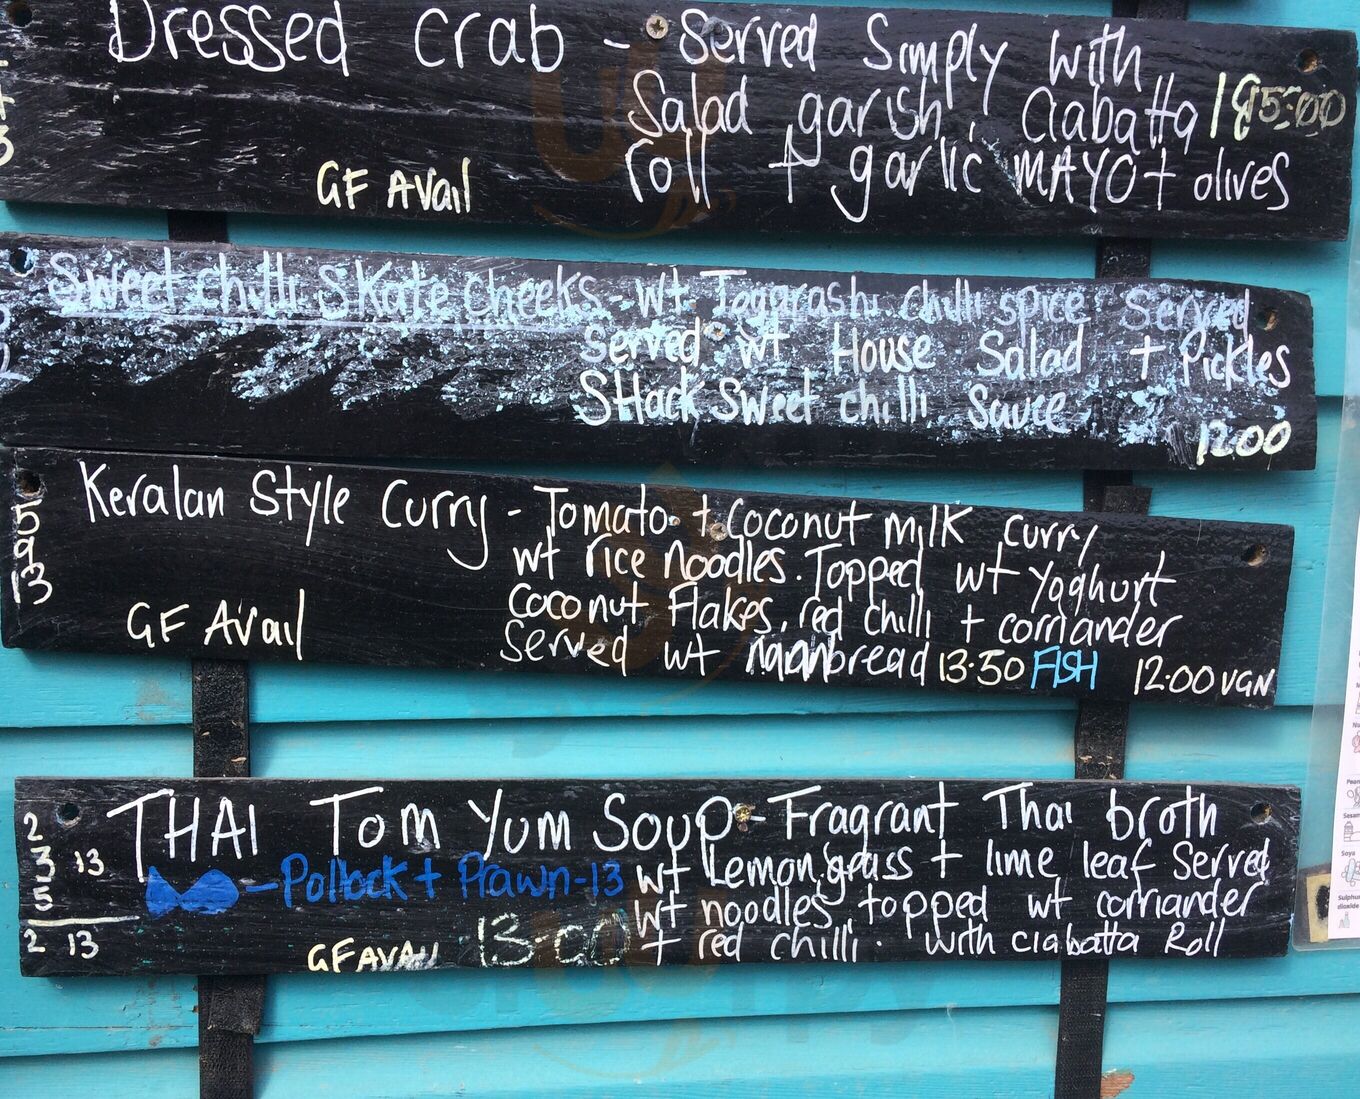 Dressed Crab - Served Simply with
Salad garish, Ciabatta
roll + garlic MAYO + olives
GF Avail
3
Sweet chilli Skate Cheeks - wt Togarashi chilli spice Served
Served wt House Salad + Pickles
SHack Sweet chilli Sauce
12.00
5
9
13
Keralan Style Curry - Tomato + Coconut milk curry
wt rice noodles. Topped wt Yoghurt
Coconut Flakes, red chilli + corriander
Served wt naanbread 13.50 FISH 12.00 VGN
GF Avail
2
3 13
5
2 13
THAI Tom Yum Soup - Fragrant Thai broth
- Pollock + Prawn - 13 wt Lemongrass + lime leaf Served
wt noodles, topped wt corriander
+ red chilli. with ciabatta Roll
GF AVAIL 13-00
Soya